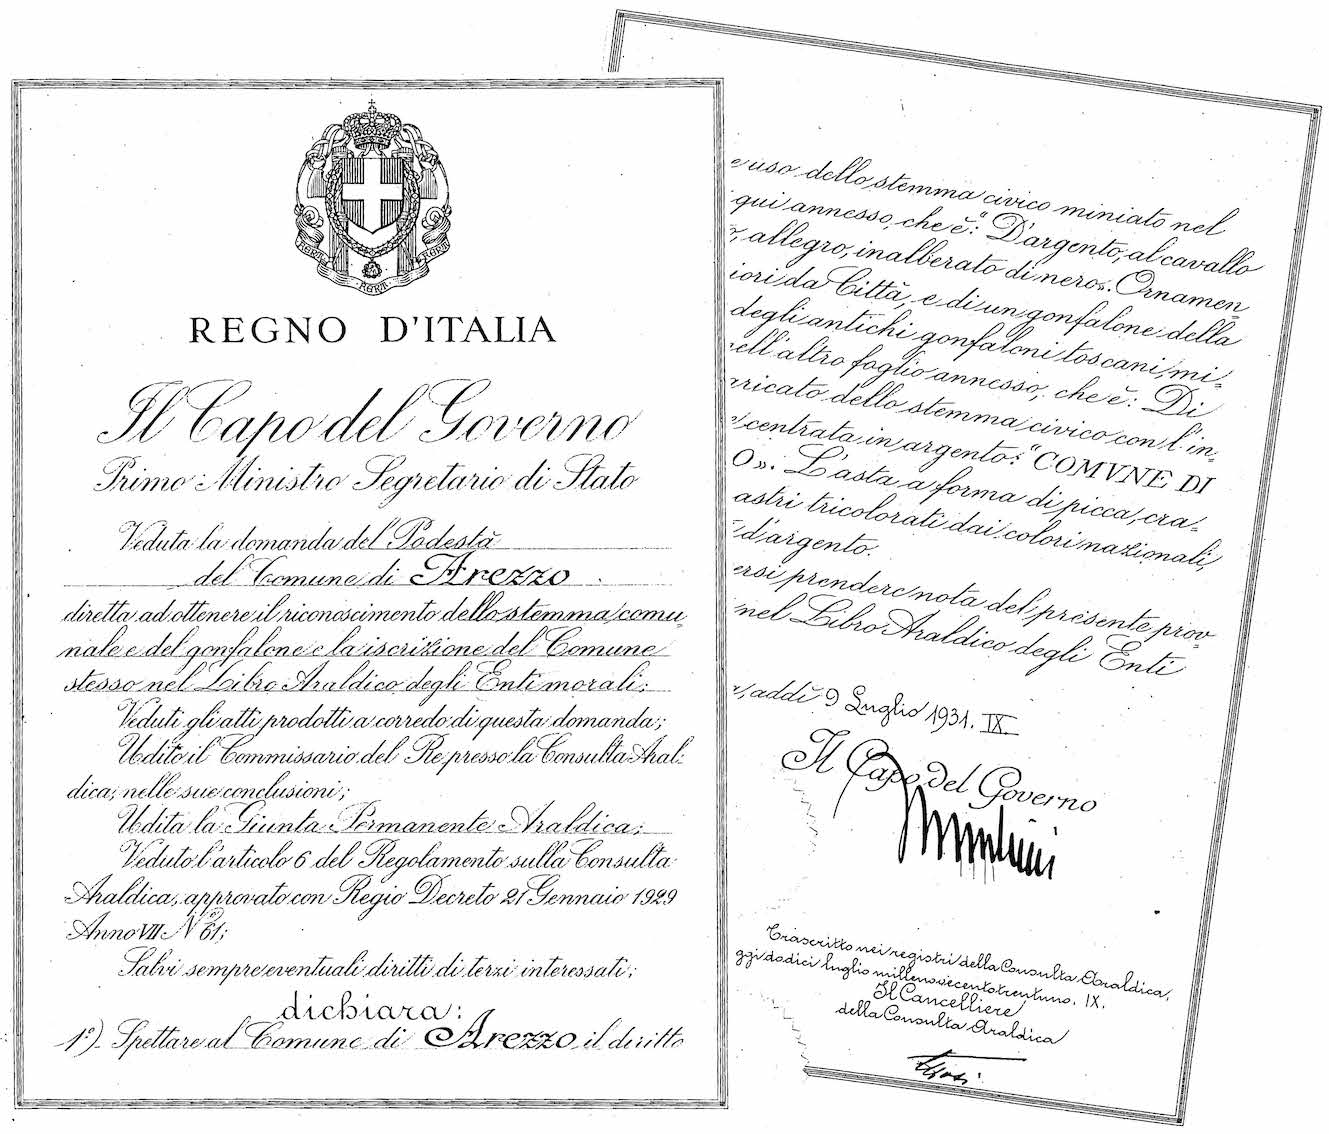 FERT FERT FERT
REGNO D'ITALIA
Il Capo del Governo
Primo Ministro Segretario di Stato
Veduta la domanda del Podestà
del Comune di Arezzo
diretta ad ottenere il riconoscimento dello stemma comu-
nale e del gonfalone e la iscrizione del Comune
stesso nel Libro Araldico degli Enti morali;
Veduti gli atti prodotti a corredo di questa domanda;
Udito il Commissario del Re presso la Consulta Aral-
dica, nelle sue conclusioni;
Udita la Giunta Permanente Araldica;
Veduto l'articolo 6 del Regolamento sulla Consulta
Araldica, approvato con Regio Decreto 21 Gennaio 1929
Anno VII N° 61;
Salvi sempre eventuali diritti di terzi interessati;
dichiara:
1°) Spettare al Comune di Arezzo il diritto
e uso dello stemma civico miniato nel
qui annesso, che è: "D'argento, al cavallo
allegro, inalberato di nero». Ornamen-
iori da Città, e di un gonfalone della
degli antichi gonfaloni toscani, mi-
ell'altro foglio annesso, che è: Di
aricato dello stemma civico con l'in-
centrata in argento: "COMVNE DI
O». L'asta a forma di picca, cra-
astri tricolorati dai colori nazionali,
d'argento.
ersi prendere nota del presente prov-
nel Libro Araldico degli Enti
addì 9 Luglio 1931. IX
Il Capo del Governo
Mussolini
Trascritto nei registri della Consulta Araldica,
ggi dodici luglio millenovecentotrentuno. IX.
Il Cancelliere
della Consulta Araldica